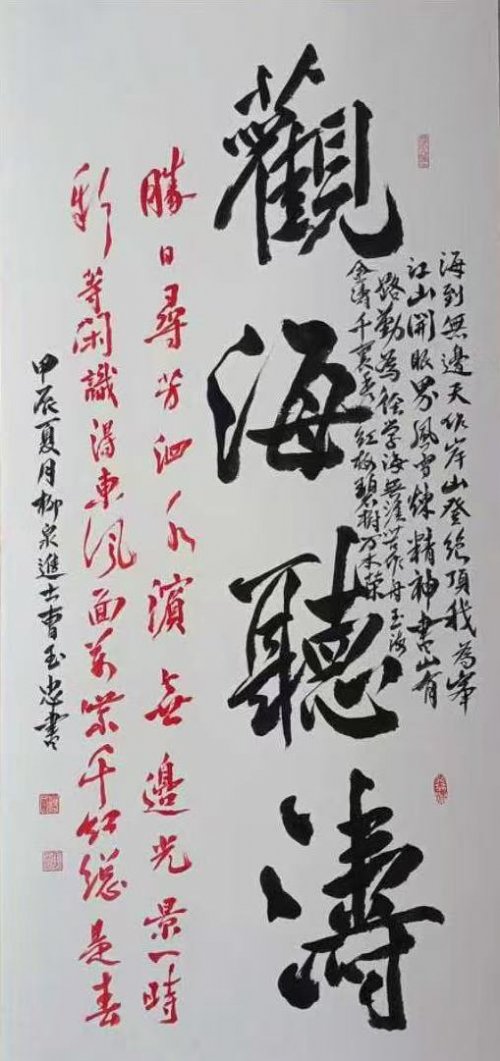 海到無邊天作岸山登絶頂我為峰
江山開眼界風雪煉精神書山有
路勤為徑學海無涯苦作舟玉海
金濤千 紅梅碧樹万木榮
觀海聽濤
勝日尋芳泗水濱無邊光景一時
新等閑識得東風面萬紫千紅總是春
甲辰夏月柳泉進士曹玉忠書